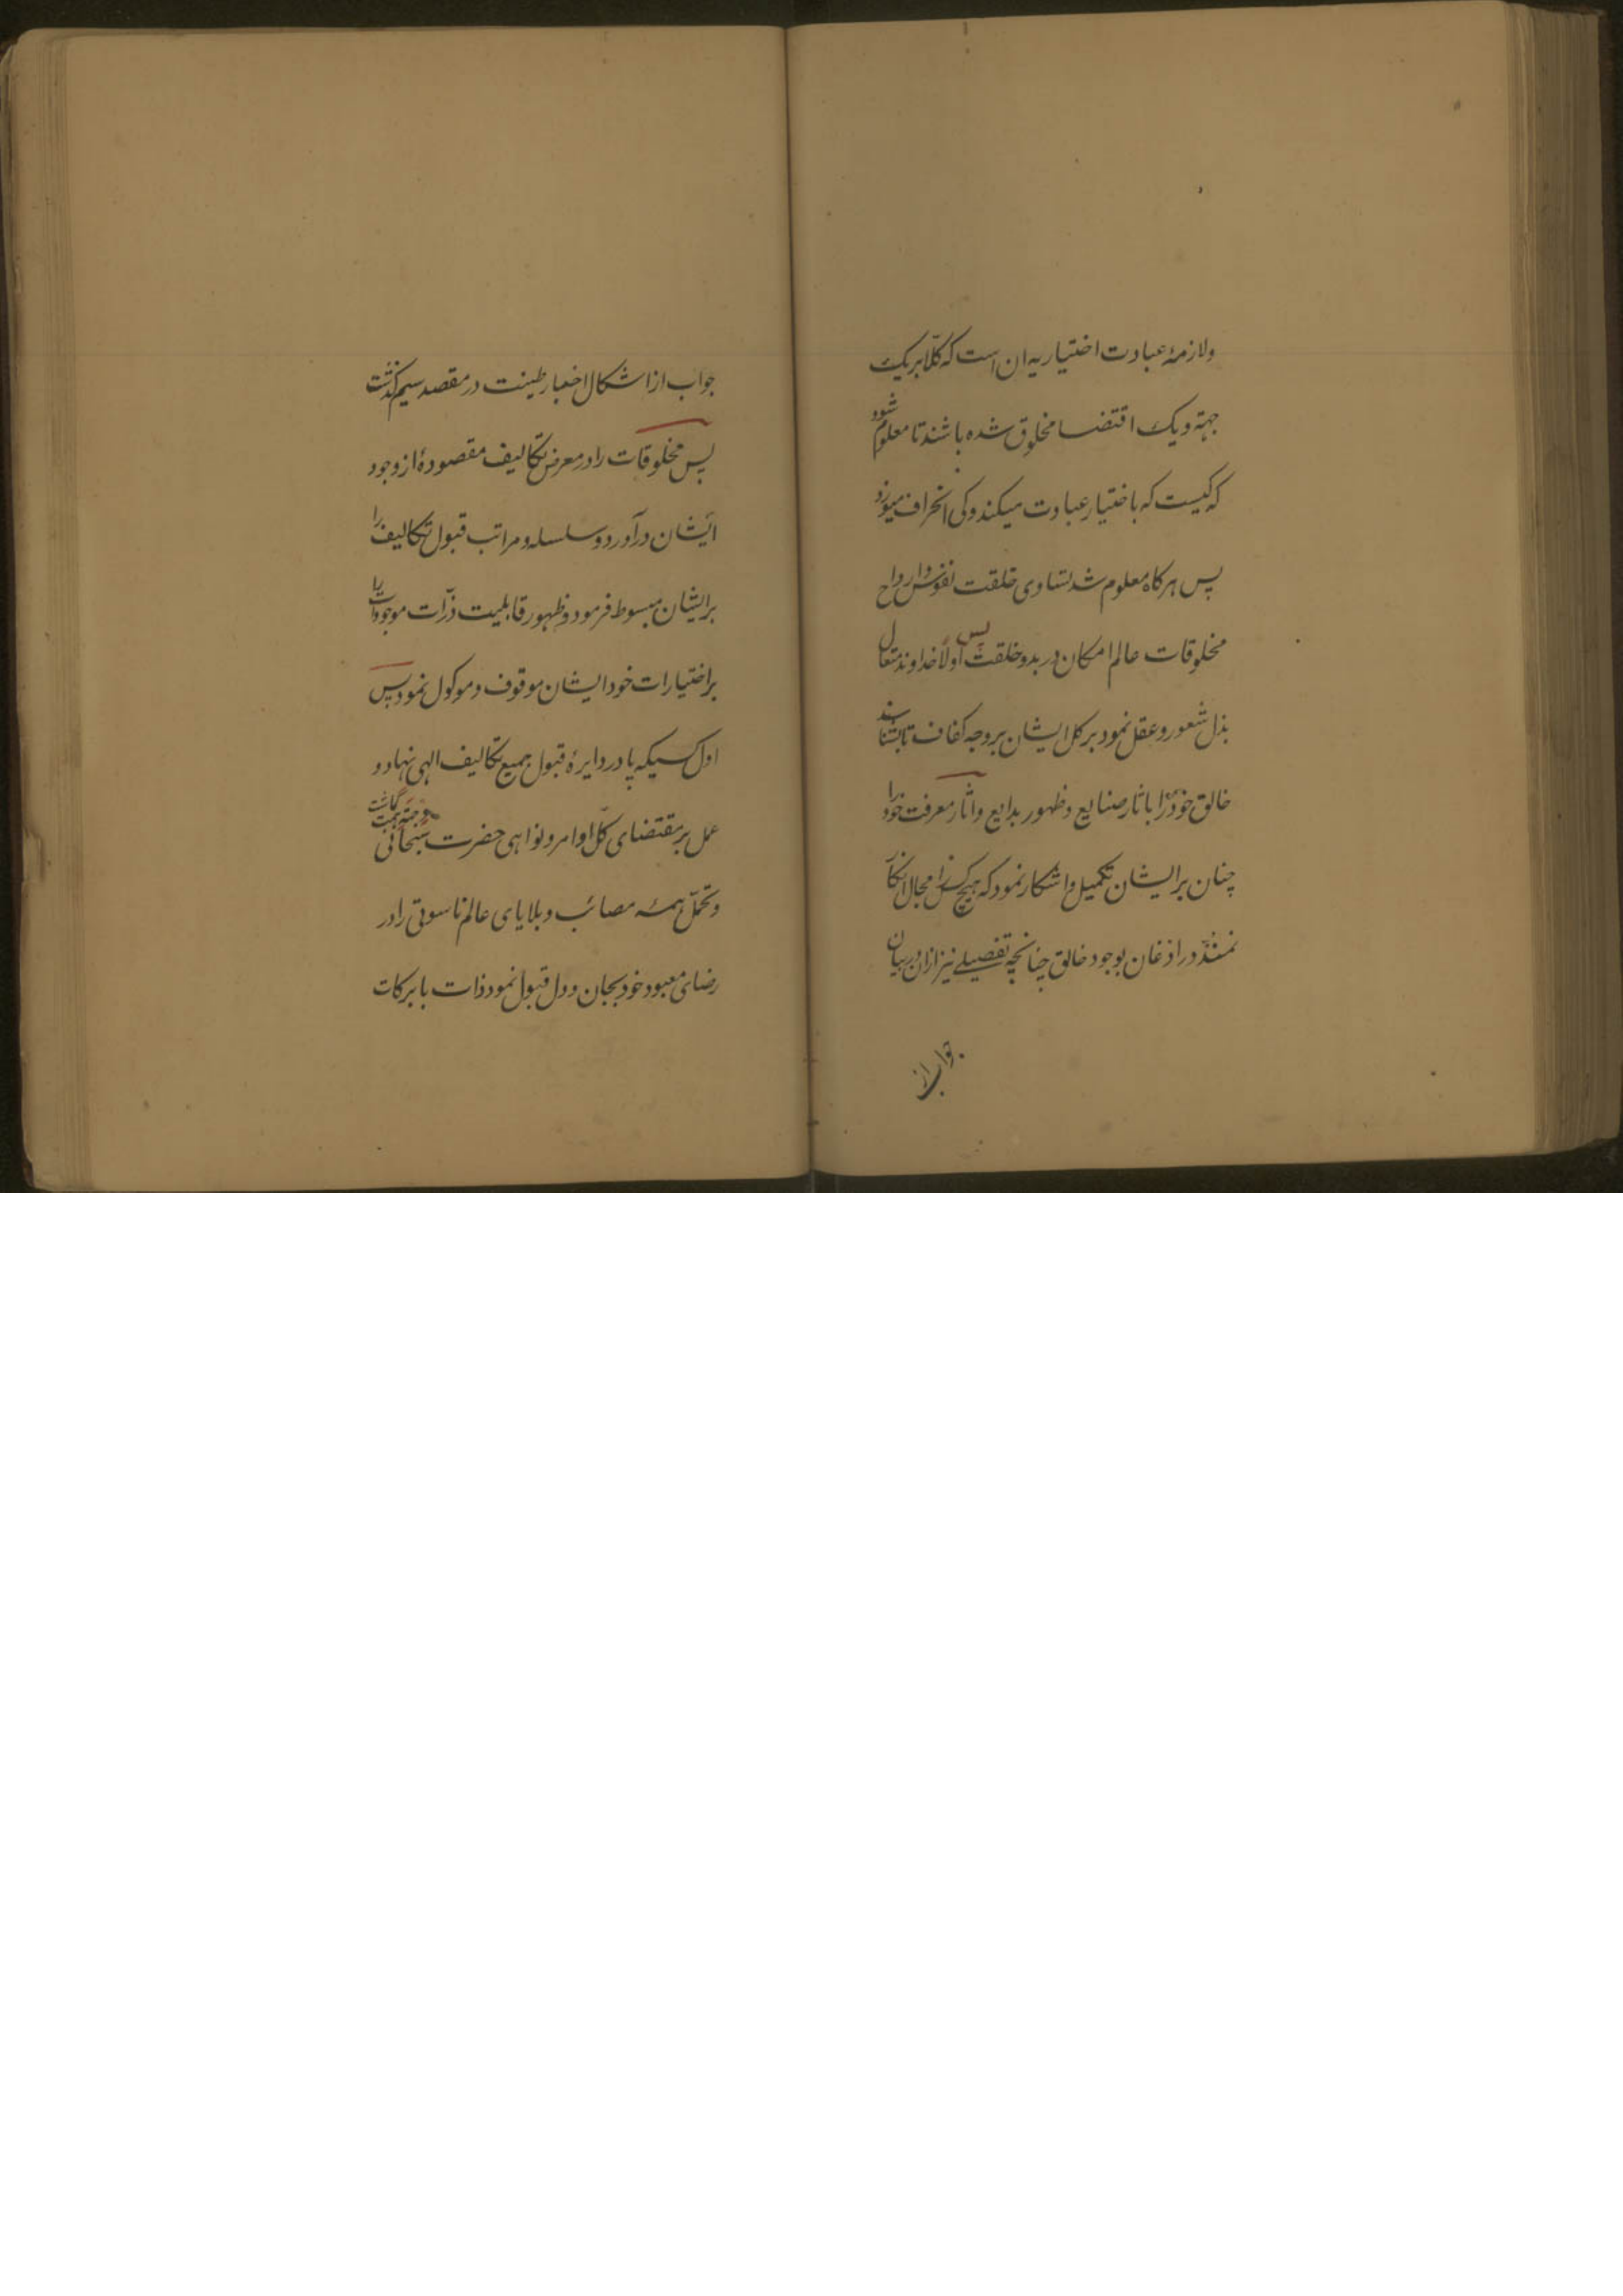 ولازمهٔ عبادت اختیاریه ان است که کلّا بریک
جهة ویک اقتضا مخلوق شده باشند تا معلوم شود
که کیست که باختیار عبادت میکند وکی انحراف میورزد
پس هرکاه معلوم شد تساوی خلقت نفوس وارواح
مخلوقات عالم امکان در بدو خلقت پس اولًا خداوند متعال
بذل شعور وعقل نمود بر کل ایشان بر وجه کفاف تا بشناسند
خالق خود را باثار صنایع وظهور بدایع واثار معرفت خود را
چنان بر ایشان تکمیل واشکار نمود که هیچ کس را مجال انکار
نمود در اذعان بوجود خالق چنانچه تفصیلی نیز ازان در بیان
جواب از
جواب از اشکال اخبار طینت در مقصد سیم کذشت
پس مخلوقات را در معرض تکالیف مقصودهٔ از وجود
ایشان درآورد وسلسله ومراتب قبول تکالیف را
برایشان مبسوط فرمود وظهور قابلیت ذرّات موجودات را
بر اختیارات خود ایشان موقوف وموکول نمود پس
اول کسیکه پا در دایرهٔ قبول جمیع تکالیف الهی نهاد و
عمل بر مقتضای کلّ اوامر ونواهی حضرت سبحانی وجهه همت گماشت
وتحمّل همهٔ مصائب وبلایای عالم ناسوتی را در
رضای معبود خود بجان ودل قبول نمود ذات با برکات